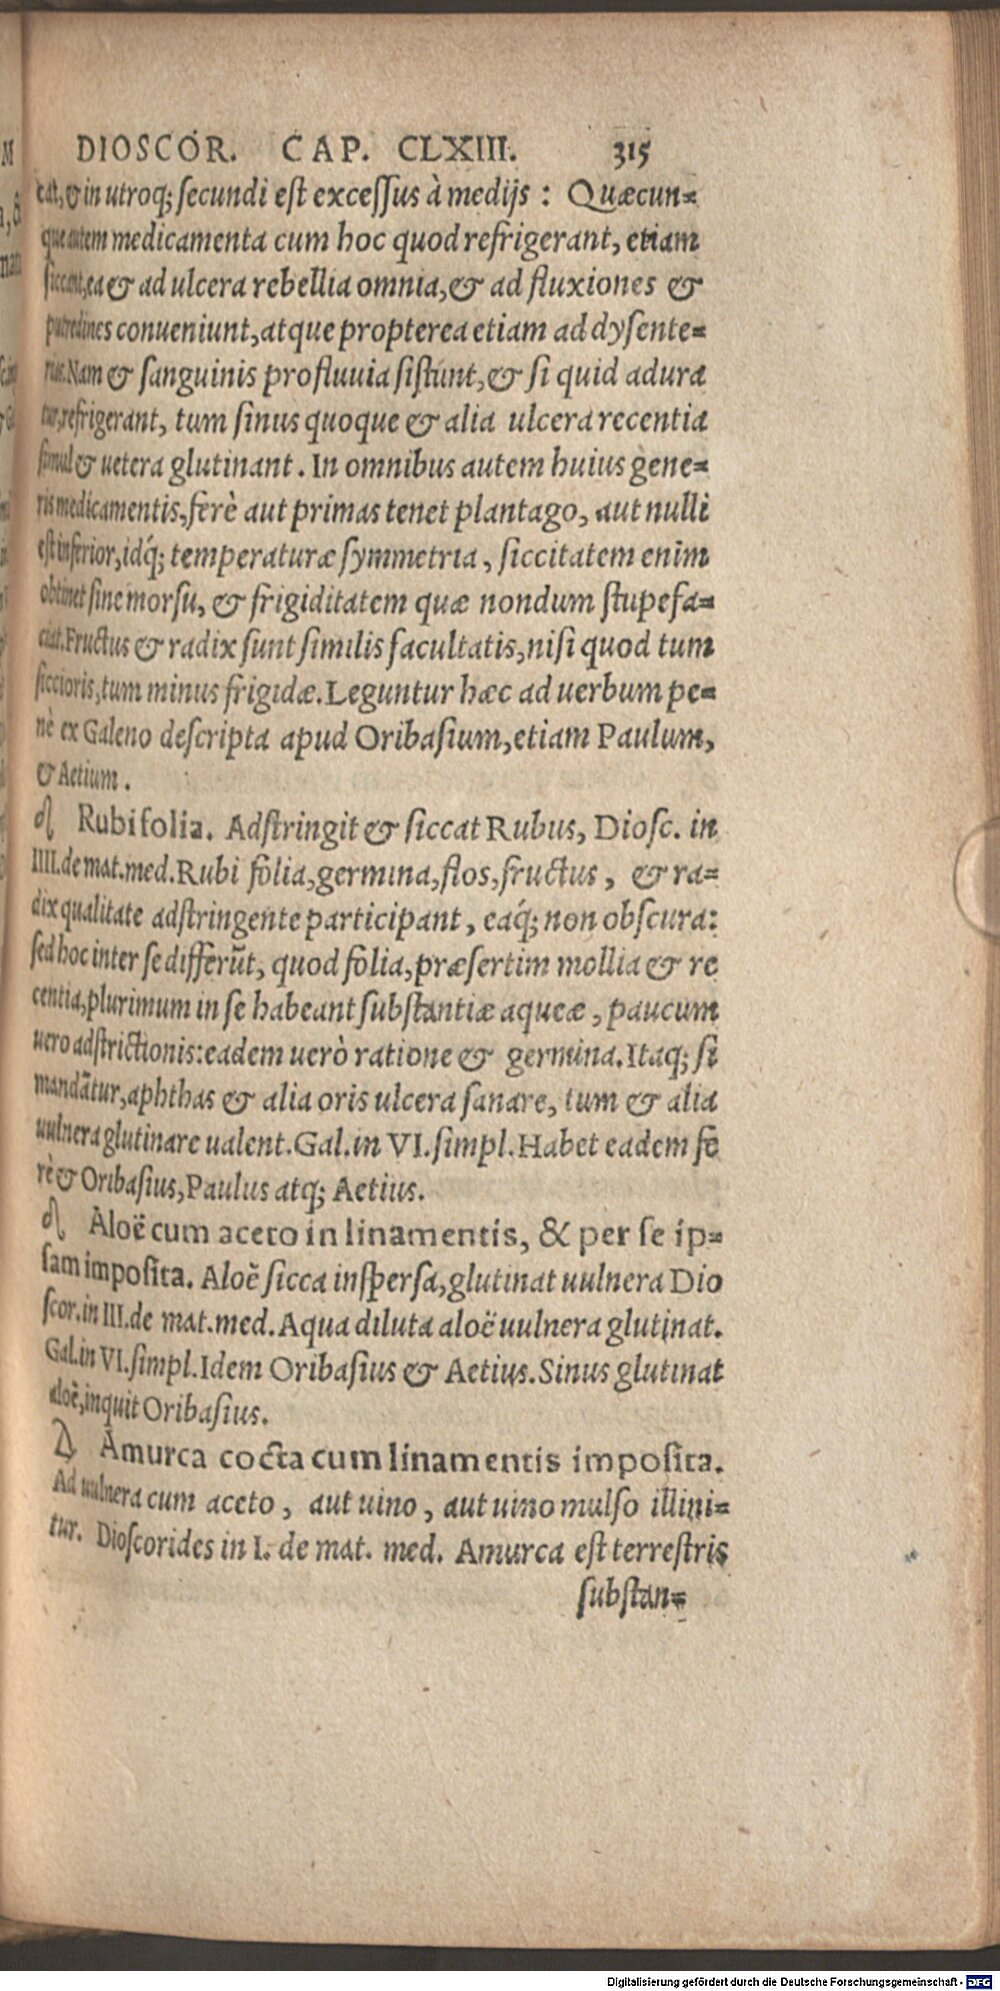 DIOSCOR. CAP. CLXIII. 315
cat, & in utroq; secundi est excessus à medijs: Quæcun=
que autem medicamenta cum hoc quod refrigerant, etiam
siccant, ea & ad ulcera rebellia omnia, & ad fluxiones &
putredines conueniunt, atque propterea etiam ad dysente=
rias. Nam & sanguinis profluuia sistunt, & si quid adura
tur, refrigerant, tum sinus quoque & alia ulcera recentia
simul & uetera glutinant. In omnibus autem huius gene=
ris medicamentis, ferè aut primas tenet plantago, aut nulli
est inferior, idq́; temperaturæ symmetria, siccitatem enim
obtinet sine morsu, & frigiditatem quæ nondum stupefa=
ciat. Fructus & radix sunt similis facultatis, nisi quod tum
siccioris, tum minus frigidæ. Leguntur hæc ad uerbum pe=
nè ex Galeno descripta apud Oribasium, etiam Paulum,
& Aetium.
Rubi folia. Adstringit & siccat Rubus, Diosc. in
IIII. de mat. med. Rubi folia, germina, flos, fructus, & ra=
dix qualitate adstringente participant, eaq́; non obscura:
sed hoc inter se differūt, quod folia, præsertim mollia & re
centia, plurimum in se habeant substantiæ aqueæ, paucum
uero adstrictionis: eadem uerò ratione & germina. Itaq; si
mandātur, aphthas & alia oris ulcera sanare, tum & alia
uulnera glutinare ualent. Gal. in VI. simpl. Habet eadem fe
rè & Oribasius, Paulus atq; Aetius.
Aloë cum aceto in linamentis, & per se ip=
sam imposita. Aloë sicca inspersa, glutinat uulnera Dio
scor. in III. de mat. med. Aqua diluta aloë uulnera glutinat.
Gal. in VI. simpl. Idem Oribasius & Aetius. Sinus glutinat
aloë, inquit Oribasius.
Amurca cocta cum linamentis imposita.
Ad uulnera cum aceto, aut uino, aut uino mulso illini=
tur. Dioscorides in I. de mat. med. Amurca est terrestris
substan=
Digitalisierung gefördert durch die Deutsche Forschungsgemeinschaft - DFG